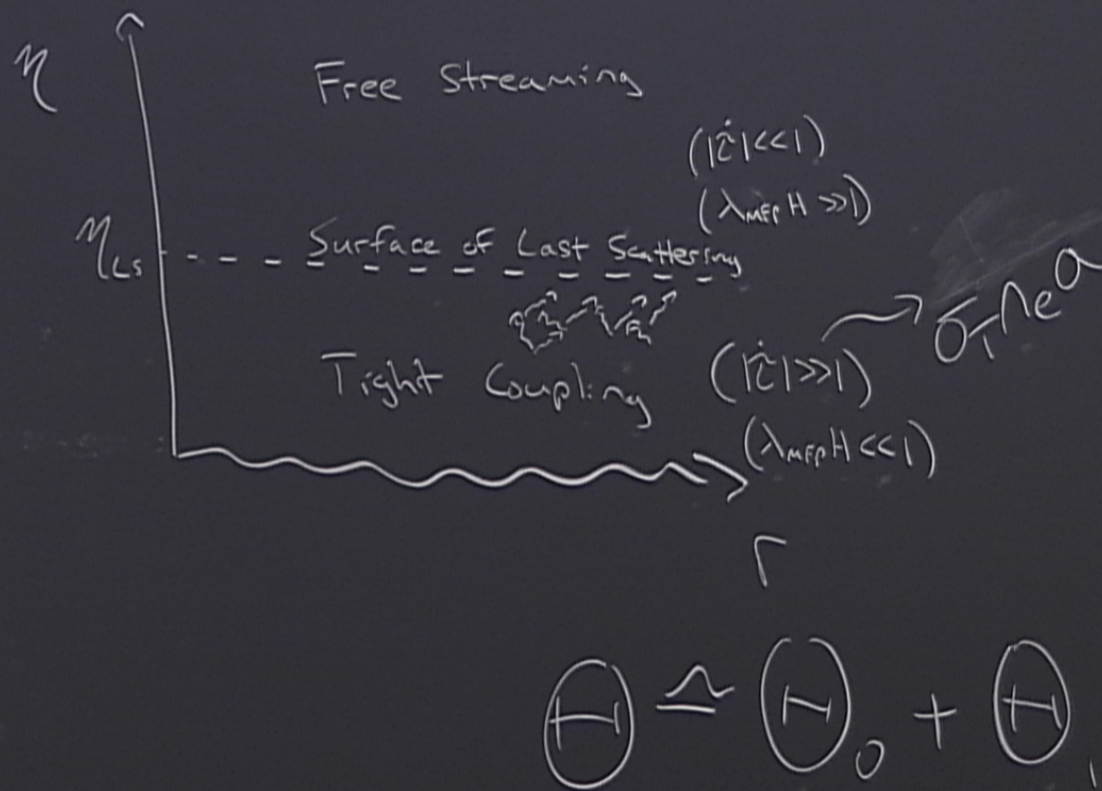 η
Free Streaming
(|τ̇|<<1)
(λ_MFP H >>1)
η_LS
Surface of Last Scattering
Tight Coupling
(|τ̇|>>1)
σ_T n_e a
(λ_MFP H <<1)
r
Θ ≃ Θ_0 + Θ_1